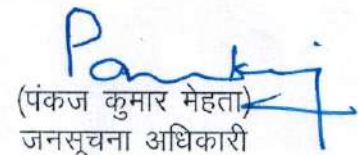 Pankaj
(पंकज कुमार मेहता)
जनसूचना अधिकारी